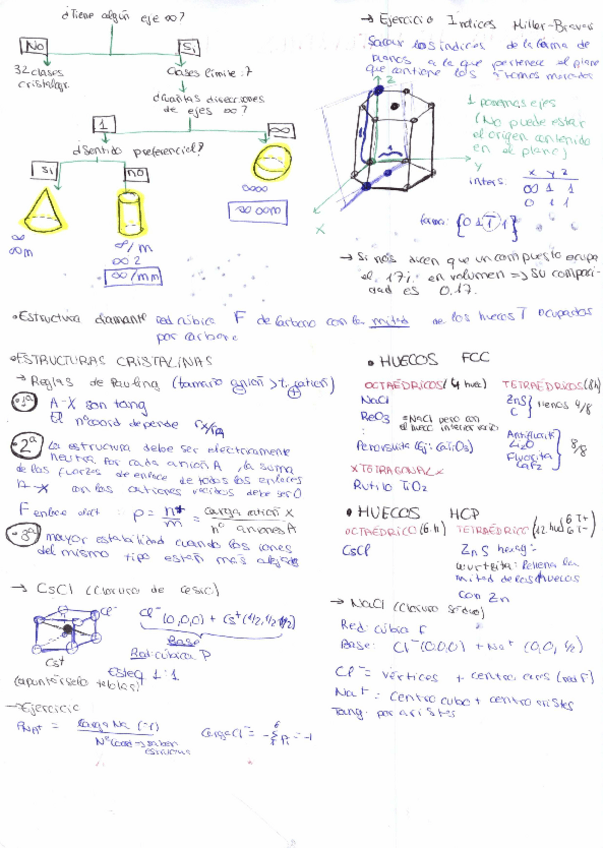 ¿Tiene algún eje ∞?
No
Si
32 clases
cristalogr.
Clases límite: 7
¿Cuántas direcciones
de ejes ∞?
1
∞
¿Sentido preferencial?
Si
no
∞
∞m
∞/m
∞2
∞/mm
∞∞
∞∞m
→ Ejercicio Indices Miller-Bravais
Sacar los indices de la forma de
planos a la que pertenece el plane
que contiene los átomos marcados
Z
Y
X
1 ponemos ejes
(No puede estar
el origen contenido
en el plano)
x y z
inters. ∞ 1 1
0 1 1
forma {0 1 1̅ 1}
→ Si nos dicen que un compuesto ocupa
el 17% en volumen => su compaci-
dad es 0.17.
• Estructura diamante red cúbica F de carbono con la mitad de los huecos T ocupados
por carbono
• ESTRUCTURAS CRISTALINAS
→ Reglas de Pauling (tamaño anión > t. catión)
1ª A-X son tang
El nº coord depende rx/rA
2ª La estructura debe ser electricamente
neutra. Por cada anión A, la suma
de las fuerzas de enlace de todos los enlaces
A-X con los cationes vecinos debe ser 0
F enlace elect: p = n+/m = carga catión X / nº aniones A
3ª mayor estabilidad cuando los iones
del mismo tipo estén más alejados
→ CsCl (Cloruro de cesio)
Cl⁻
Cs⁺
Cl⁻ (0,0,0) + Cs⁺ (1/2, 1/2, 1/2)
Base
Red: cúbica P
Esteq 1:1
→ Ejercicio
carga Na (+1)
Carga Cl⁻ = -Σ Pi = -1
• HUECOS FCC
OCTAÉDRICOS (4 hue) TETRAÉDRICOS (8h)
NaCl
ReO3 = NaCl pero con
el hueco interior vacío
Perovskita Ej: CaTiO3
x TETRAGONAL x
Rutilo TiO2
ZnS
C
llenos 4/8
Antifluorit
Li2O
Fluorita
CaF2
8/8
• HUECOS HCP
OCTAÉDRICO (6 h) TETRAÉDRICO (12 hue) 6 T+
6 T-
CsCl
ZnS hexg:
wurtzita: Rellena la
mitad de los huecos
con Zn
→ NaCl (Cloruro sódico)
Red: cúbica F
Base: Cl⁻ (0,0,0) + Na⁺ (0,0,1/2)
Cl⁻ = vértices + centro caras (red F)
Na⁺ = Centro cubo + centro aristas
Tang. por aristas